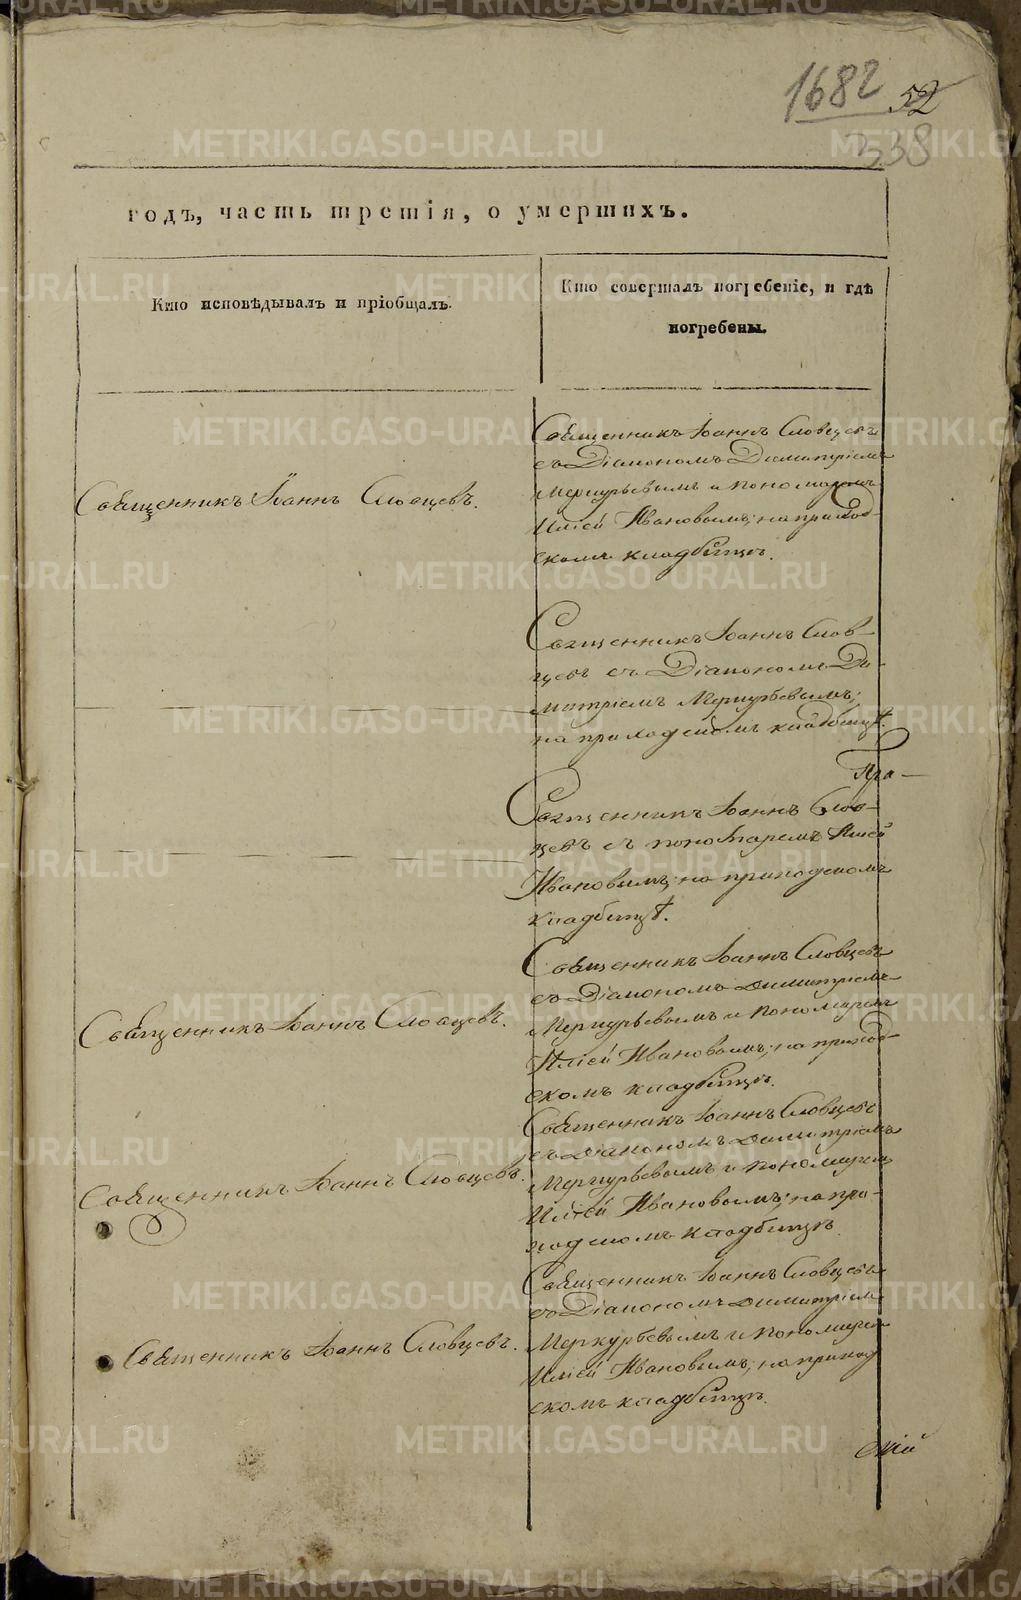 1682 52
338
годъ, часть третія, о умершихъ.
Кто исповѣдывалъ и пріобщалъ.
Кто совершалъ погребеніе, и гдѣ
погребены.
Священникъ Іоаннъ Словцевъ.
Священникъ Іоаннъ Словцевъ
съ Діакономъ Димитріемъ
Меркурьевымъ и пономаремъ
Иліей Ивановымъ; на приход-
скомъ кладбищѣ.
Священникъ Іоаннъ Слов-
цевъ съ Діакономъ Ди-
митріемъ Меркурьевымъ;
на приходскомъ кладбищѣ.
Священникъ Іоаннъ Слов-
цевъ съ пономаремъ Иліей
Ивановымъ; на приходскомъ
кладбищѣ.
Священникъ Іоаннъ Словцевъ.
Священникъ Іоаннъ Словцевъ
съ Діакономъ Димитріемъ
Меркурьевымъ и пономаремъ
Иліей Ивановымъ; на приход-
скомъ кладбищѣ.
Священникъ Іоаннъ Словцевъ.
Священникъ Іоаннъ Словцевъ
съ Діакономъ Димитріемъ
Меркурьевымъ и пономаремъ
Иліей Ивановымъ; на при-
ходскомъ кладбищѣ.
Священникъ Іоаннъ Словцевъ.
Священникъ Іоаннъ Словцевъ
съ Діакономъ Димитріемъ
Меркурьевымъ и пономаремъ
Иліей Ивановымъ; на приход
скомъ кладбищѣ.
METRIKI.GASO-URAL.RU